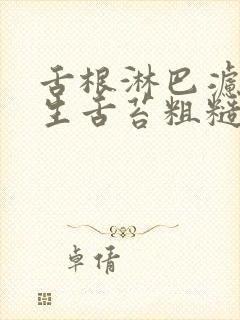 舌根淋巴滤
生舌苔粗糙
卓倩